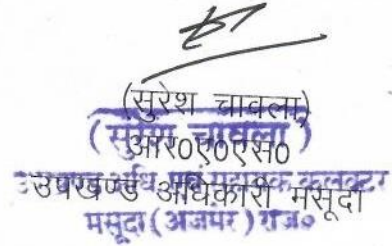 (सुरेश चावला)
(सुरेश चावला)
आर०ए०एस०
उपखण्ड अधिकारी मसूदा
सहायक कलक्टर
मसूदा (अजमेर) राज०